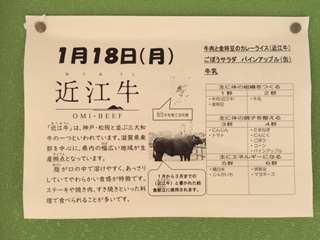 1月18日(月)
おうみうし
近江牛
OMI-BEEF
「近江牛」は、神戸・松阪と並ぶ三大和
牛の一つといわれています。滋賀県東
部を中心に、県内の幅広い地域が生
産拠点となっています。
脂が口の中で溶けやすく、あっさり
していてやわらかい食感が特徴です。
ステーキや焼き肉、すき焼きといった料
理で食べられることが多いです。
1月から3月までの
《近江牛》と書かれた給
食献立に使用されます。
牛肉と金時豆のカレーライス(近江牛)
ごぼうサラダ パインアップル(缶)
牛乳
主に体の組織をつくる
1群 2群
・牛肉(近江牛) ・牛乳
・金時豆
主に体の調子を整える
3群 4群
・にんじん ・たまねぎ
・トマト ・にんにく
・ごぼう
・コーン
・パインアップル
主にエネルギーになる
5群 6群
・精白米 ・綿実油
・じゃがいも ・マヨネーズ